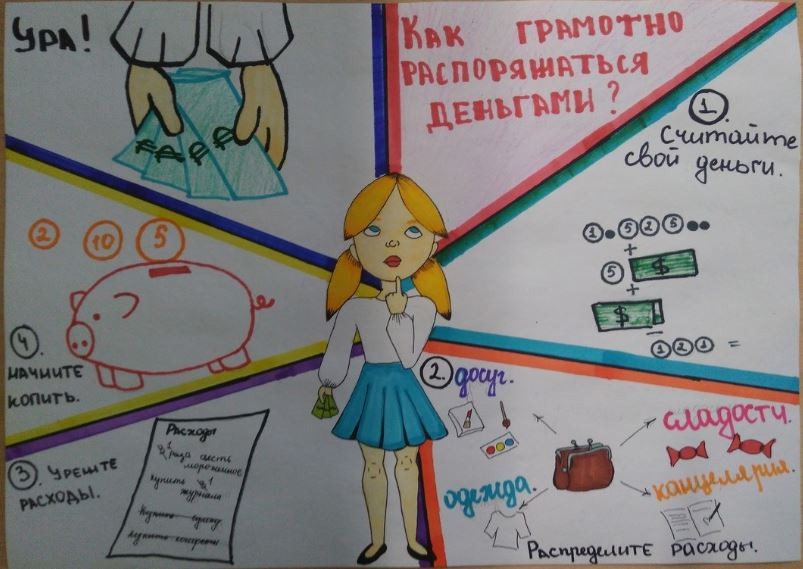 Ура!
Как грамотно
распоряжаться
деньгами?
1.
Считайте
свой деньги.
1 5 2 5
+
5 $
+
$
-
1 2 1 =
2. досуг.
сладости.
одежда.
канцелярия.
Распределите расходы.
3 Урежте
расходы.
Расходы
раза съесть
мороженное
купить 1
журнала
2 10 5
4
начните
копить.